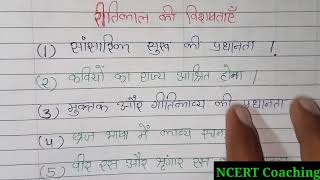 रीतिकाल की विशेषताएँ
(1) सांसारिक सुख की प्रधानता ।
(2) कवियों का राज्य आश्रित होना ।
(3) मुक्तक और गीतिकाव्य की प्रधानता
(4) ब्रज भाषा में काव्य
(5) वीर रस और श्रृंगार रस
NCERT Coaching